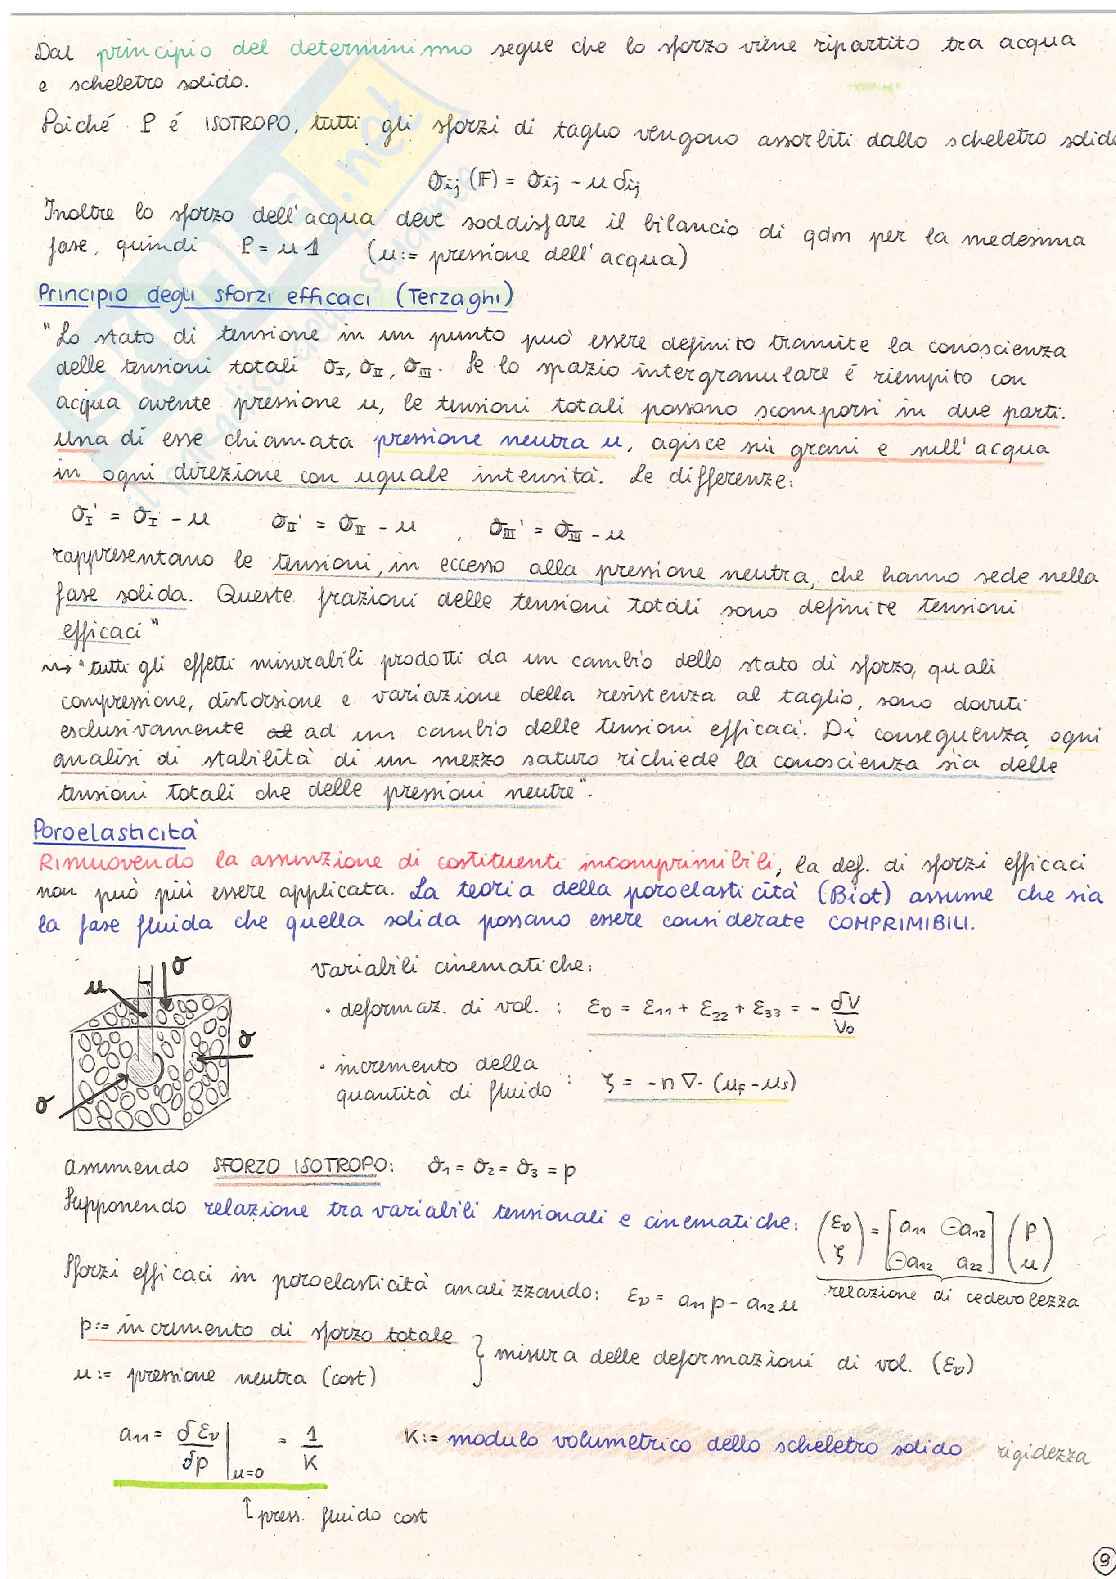 Dal principio del determinismo segue che lo sforzo viene ripartito tra acqua
e scheletro solido.
Poiché P é ISOTROPO, tutti gli sforzi di taglio vengono assorbiti dallo scheletro solido
σij (F) = σij - u δij
Inoltre lo sforzo dell'acqua deve soddisfare il bilancio di qdm per la medesima
fase, quindi P = u 1 (u := pressione dell'acqua)
Principio degli sforzi efficaci (Terzaghi)
"Lo stato di tensione in un punto può essere definito tramite la conoscienza
delle tensioni totali σI, σII, σIII. Se lo spazio intergranulare é riempito con
acqua avente pressione u, le tensioni totali possono scomporsi in due parti.
Una di esse chiamata pressione neutra u, agisce sui grani e sull'acqua
in ogni direzione con uguale intensità. Le differenze:
σI' = σI - u σII' = σII - u , σIII' = σIII - u
rappresentano le tensioni, in eccesso alla pressione neutra, che hanno sede nella
fase solida. Queste frazioni delle tensioni totali sono definite tensioni
efficaci"
⇝ "tutti gli effetti misurabili prodotti da un cambio dello stato di sforzo, quali
compressione, distorsione e variazione della resistenza al taglio, sono dovuti
esclusivamente ad un cambio delle tensioni efficaci. Di conseguenza ogni
analisi di stabilità di un mezzo saturo richiede la conoscienza sia delle
tensioni totali che delle pressioni neutre".
Poroelasticità
Rimuovendo la assunzione di costituenti incomprimibili, la def. di sforzi efficaci
non può più essere applicata. La teoria della poroelasticità (Biot) assume che sia
la fase fluida che quella solida possano essere considerate COMPRIMIBILI.
σ
u
σ
σ
variabili cinematiche:
· deformaz. di vol. : εv = ε11 + ε22 + ε33 = - δV/V0
· incremento della
quantità di fluido : ζ = -n ∇· (uF - us)
Assumendo SFORZO ISOTROPO: σ1 = σ2 = σ3 = p
Supponendo relazione tra variabili tensionali e cinematiche: (εv ζ) = [a11 -a12 -a12 a22] (p u)
relazione di cedevolezza
Sforzi efficaci in poroelasticità analizzando: εv = a11 p - a12 u
p := incremento di sforzo totale
u := pressione neutra (cost)
} misura delle deformazioni di vol. (εv)
a11 = δεv/δp |u=0 = 1/K K := modulo volumetrico dello scheletro solido rigidezza
↑ press. fluido cost
9